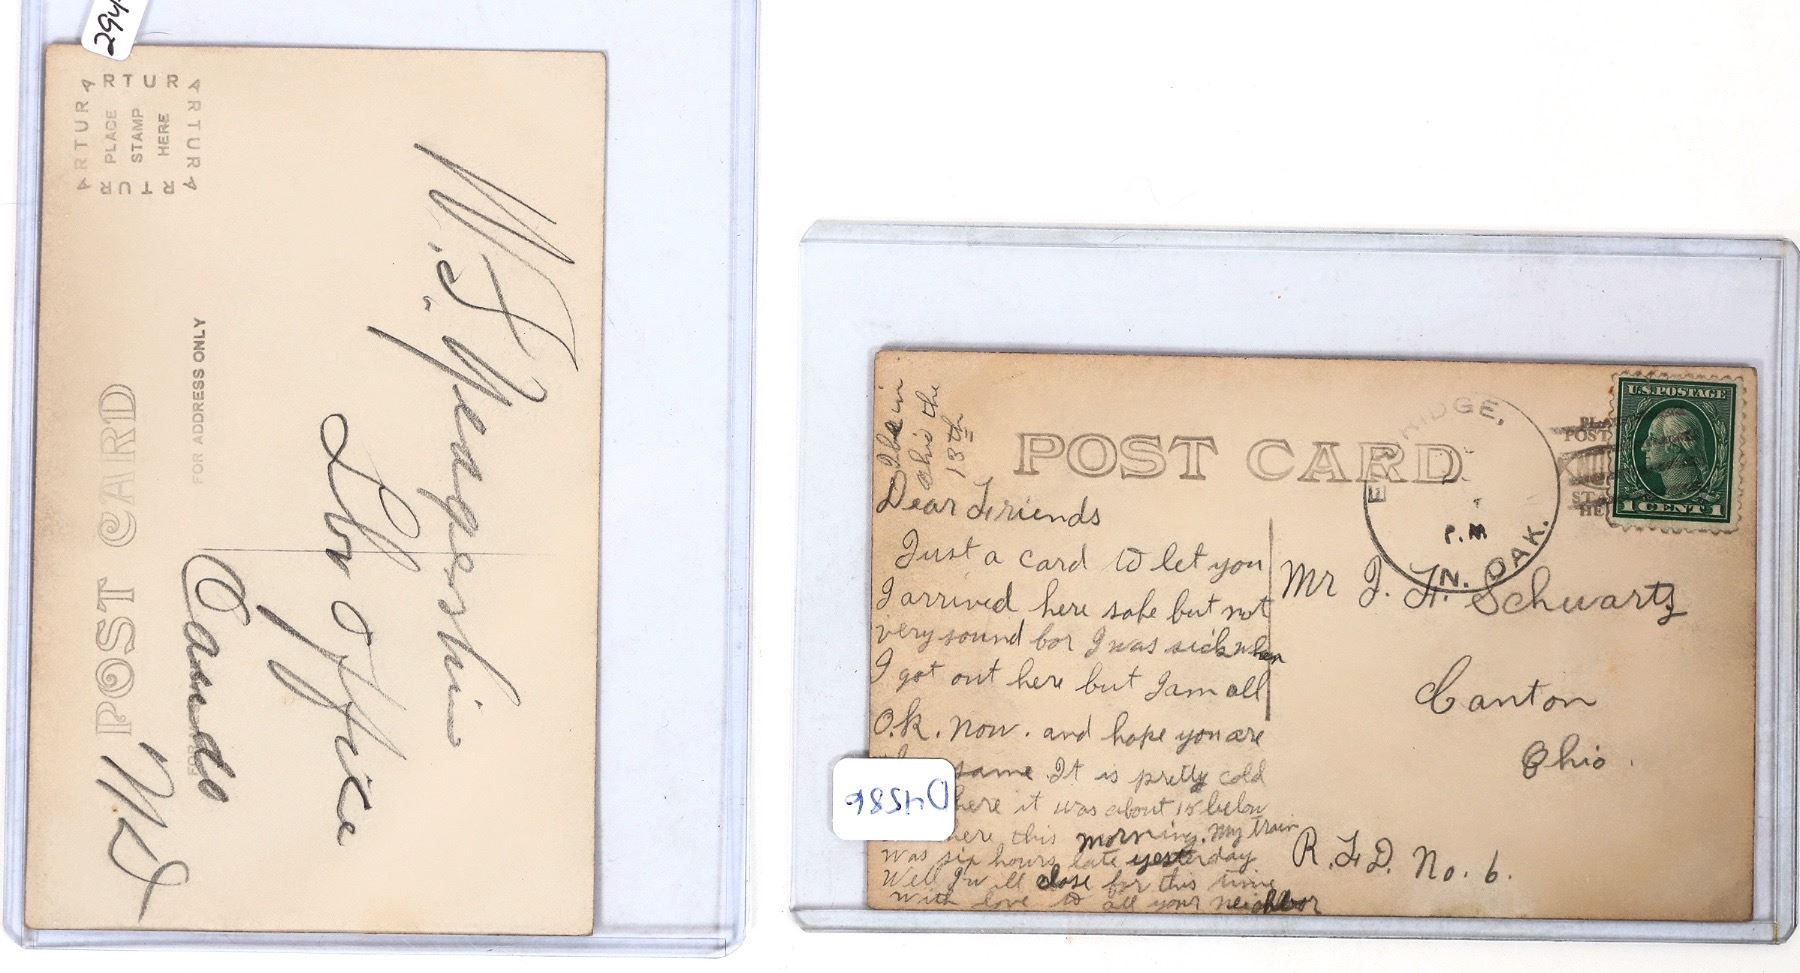 294
ARTURA
PLACE
STAMP
HERE
POST CARD
FOR ADDRESS ONLY
W. S.
Office
Cando
N D
I be in
Ohio the
13th
POST CARD
U.S. POSTAGE
1 CENT 1
RIDGE,
P.M
N. DAK.
Dear Friends
Just a card to let you
I arrived here safe but not
very sound for I was sick when
I got out here but I am all
O.K. now. and hope you are
same. It is pretty cold
here it was about 15 below
here this morning. My train
was six hours late yesterday
Well I will close for this time
with love to all your neighbor
Mr J. H. Schwartz
Canton
Ohio.
R. F. D. No. 6.
D4586